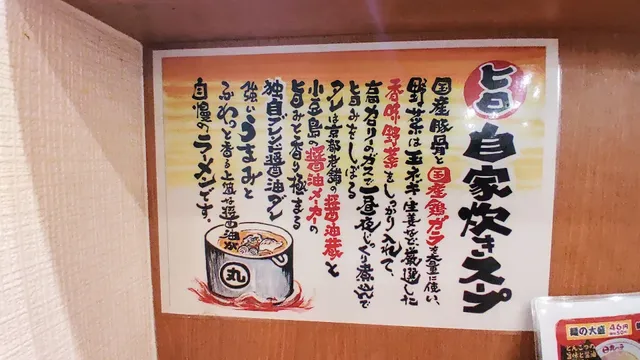 旨 自家炊きスープ
国産豚骨と国産鶏ガラを大量に使い、
野菜は玉ネギ、生姜など厳選した
香味野菜をしっかり入れて、
高カロリーのガスで一昼夜じっくり煮込んで
旨みをしぼる
タレは京都老舗の醤油蔵と
小豆島の醤油メーカーの
旨みと香り極まる
独自ブレンド醤油ダレ
強いうまみと
ふわっと香る上質な醤油が
自慢のラーメンです。
丸
麺の大盛 46円